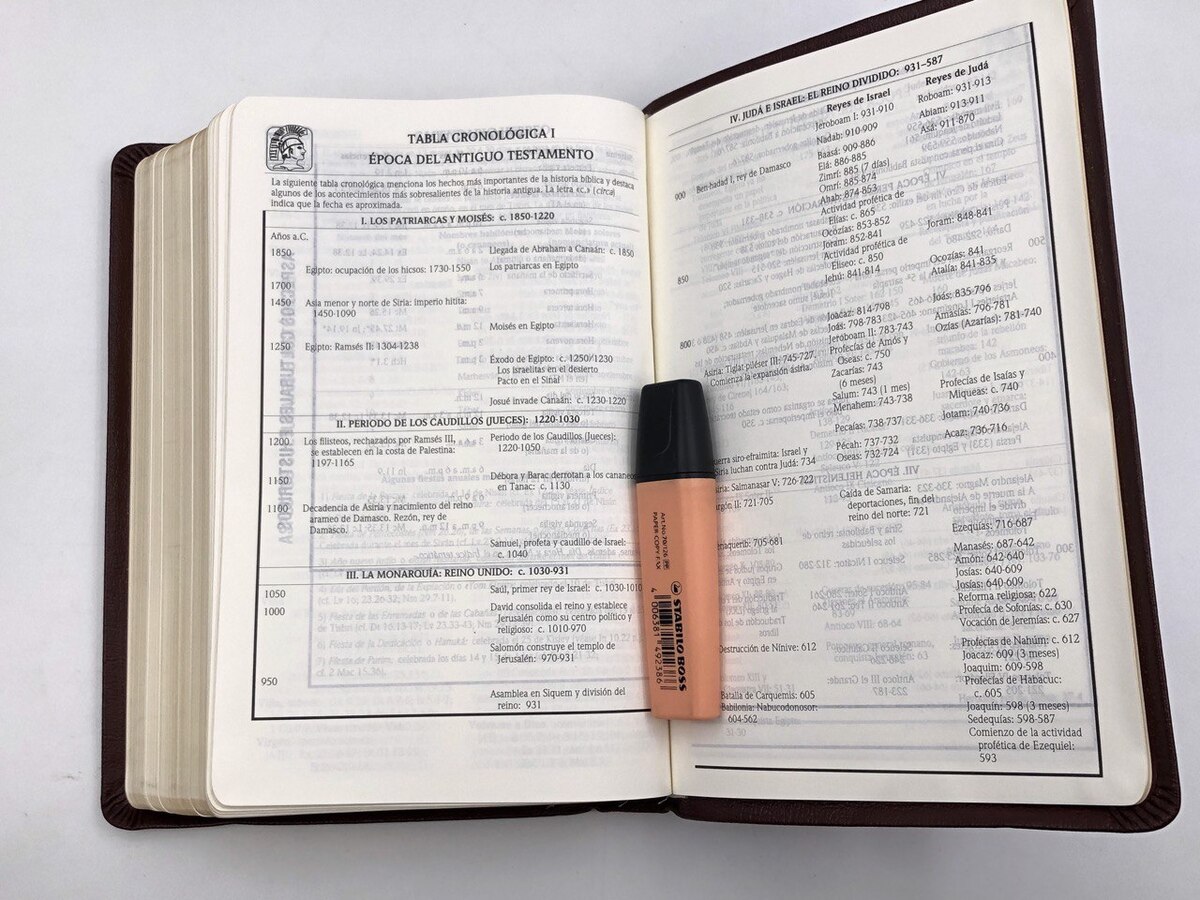 TABLA CRONOLÓGICA I
ÉPOCA DEL ANTIGUO TESTAMENTO
La siguiente tabla cronológica menciona los hechos más importantes de la historia bíblica y destaca
algunos de los acontecimientos más sobresalientes de la historia antigua. La letra «c.» (circa)
indica que la fecha es aproximada.
I. LOS PATRIARCAS Y MOISÉS: c. 1850-1220
Años a.C.
1850 Llegada de Abraham a Canaán: c. 1850
Egipto: ocupación de los hicsos: 1730-1550 Los patriarcas en Egipto
1700
1450 Asia menor y norte de Siria: imperio hitita:
1450-1090
Moisés en Egipto
1250 Egipto: Ramsés II: 1304-1238
Éxodo de Egipto: c. 1250/1230
Los israelitas en el desierto
Pacto en el Sinaí
Josué invade Canaán: c. 1230-1220
II. PERIODO DE LOS CAUDILLOS (JUECES): 1220-1030
1200 Los filisteos, rechazados por Ramsés III, Periodo de los Caudillos (Jueces):
se establecen en la costa de Palestina: 1220-1050
1197-1165
1150 Débora y Barac derrotan a los cananeos
en Tanac: c. 1130
1100 Decadencia de Asiria y nacimiento del reino
arameo de Damasco. Rezón, rey de
Damasco.
Samuel, profeta y caudillo de Israel:
c. 1040
III. LA MONARQUÍA: REINO UNIDO: c. 1030-931
1050 Saúl, primer rey de Israel: c. 1030-1010
1000 David consolida el reino y establece
Jerusalén como su centro político y
religioso: c. 1010-970
Salomón construye el templo de
Jerusalén: 970-931
950
Asamblea en Siquem y división del
reino: 931
IV. JUDÁ E ISRAEL: EL REINO DIVIDIDO: 931-587
Reyes de Israel Reyes de Judá
Jeroboam I: 931-910 Roboam: 931-913
Nadab: 910-909 Abiam: 913-911
Baasá: 909-886 Asá: 911-870
900 Ben-hadad I, rey de Damasco Elá: 886-885
Zimrí: 885 (7 días)
Omrí: 885-874
Ahab: 874-853
Actividad profética de
Elías: c. 865
Ocozías: 853-852
Joram: 852-841 Joram: 848-841
Actividad profética de
850 Eliseo: c. 850 Ocozías: 841
Jehú: 841-814 Atalía: 841-835
Joacaz: 814-798 Joás: 835-796
800 Joás: 798-783 Amasías: 796-781
Jeroboam II: 783-743 Ozías (Azarías): 781-740
Asiria: Tiglat piléser III: 745-727. Profecías de Amós y
Comienza la expansión asiria. Oseas: c. 750
Zacarías: 743
(6 meses) Profecías de Isaías y
Salum: 743 (1 mes) Miqueas: c. 740
Menahem: 743-738
Pecaías: 738-737 Jotam: 740-736
siro efraimita: Israel y Pécah: 737-732 Acaz: 736-716
Siria luchan contra Judá: 734 Oseas: 732-724
Salmanasar V: 726-722 Caída de Samaria:
II: 721-705 deportaciones, fin del
reino del norte: 721
Ezequías: 716-687
705-681 Manasés: 687-642
Amón: 642-640
Josías: 640-609
Josías: 640-609
Reforma religiosa: 622
Profecía de Sofonías: c. 630
Vocación de Jeremías: c. 627
Destrucción de Nínive: 612 Profecías de Nahúm: c. 612
Joacaz: 609 (3 meses)
Joaquim: 609-598
Profecías de Habacuc:
Batalla de Carquemis: 605 c. 605
Babilonia: Nabucodonosor: Joaquín: 598 (3 meses)
604-562 Sedequías: 598-587
Comienzo de la actividad
profética de Ezequiel:
593
Art.No.70/126
PAPER COPY FAX
STABILO BOSS
4 006381 492386